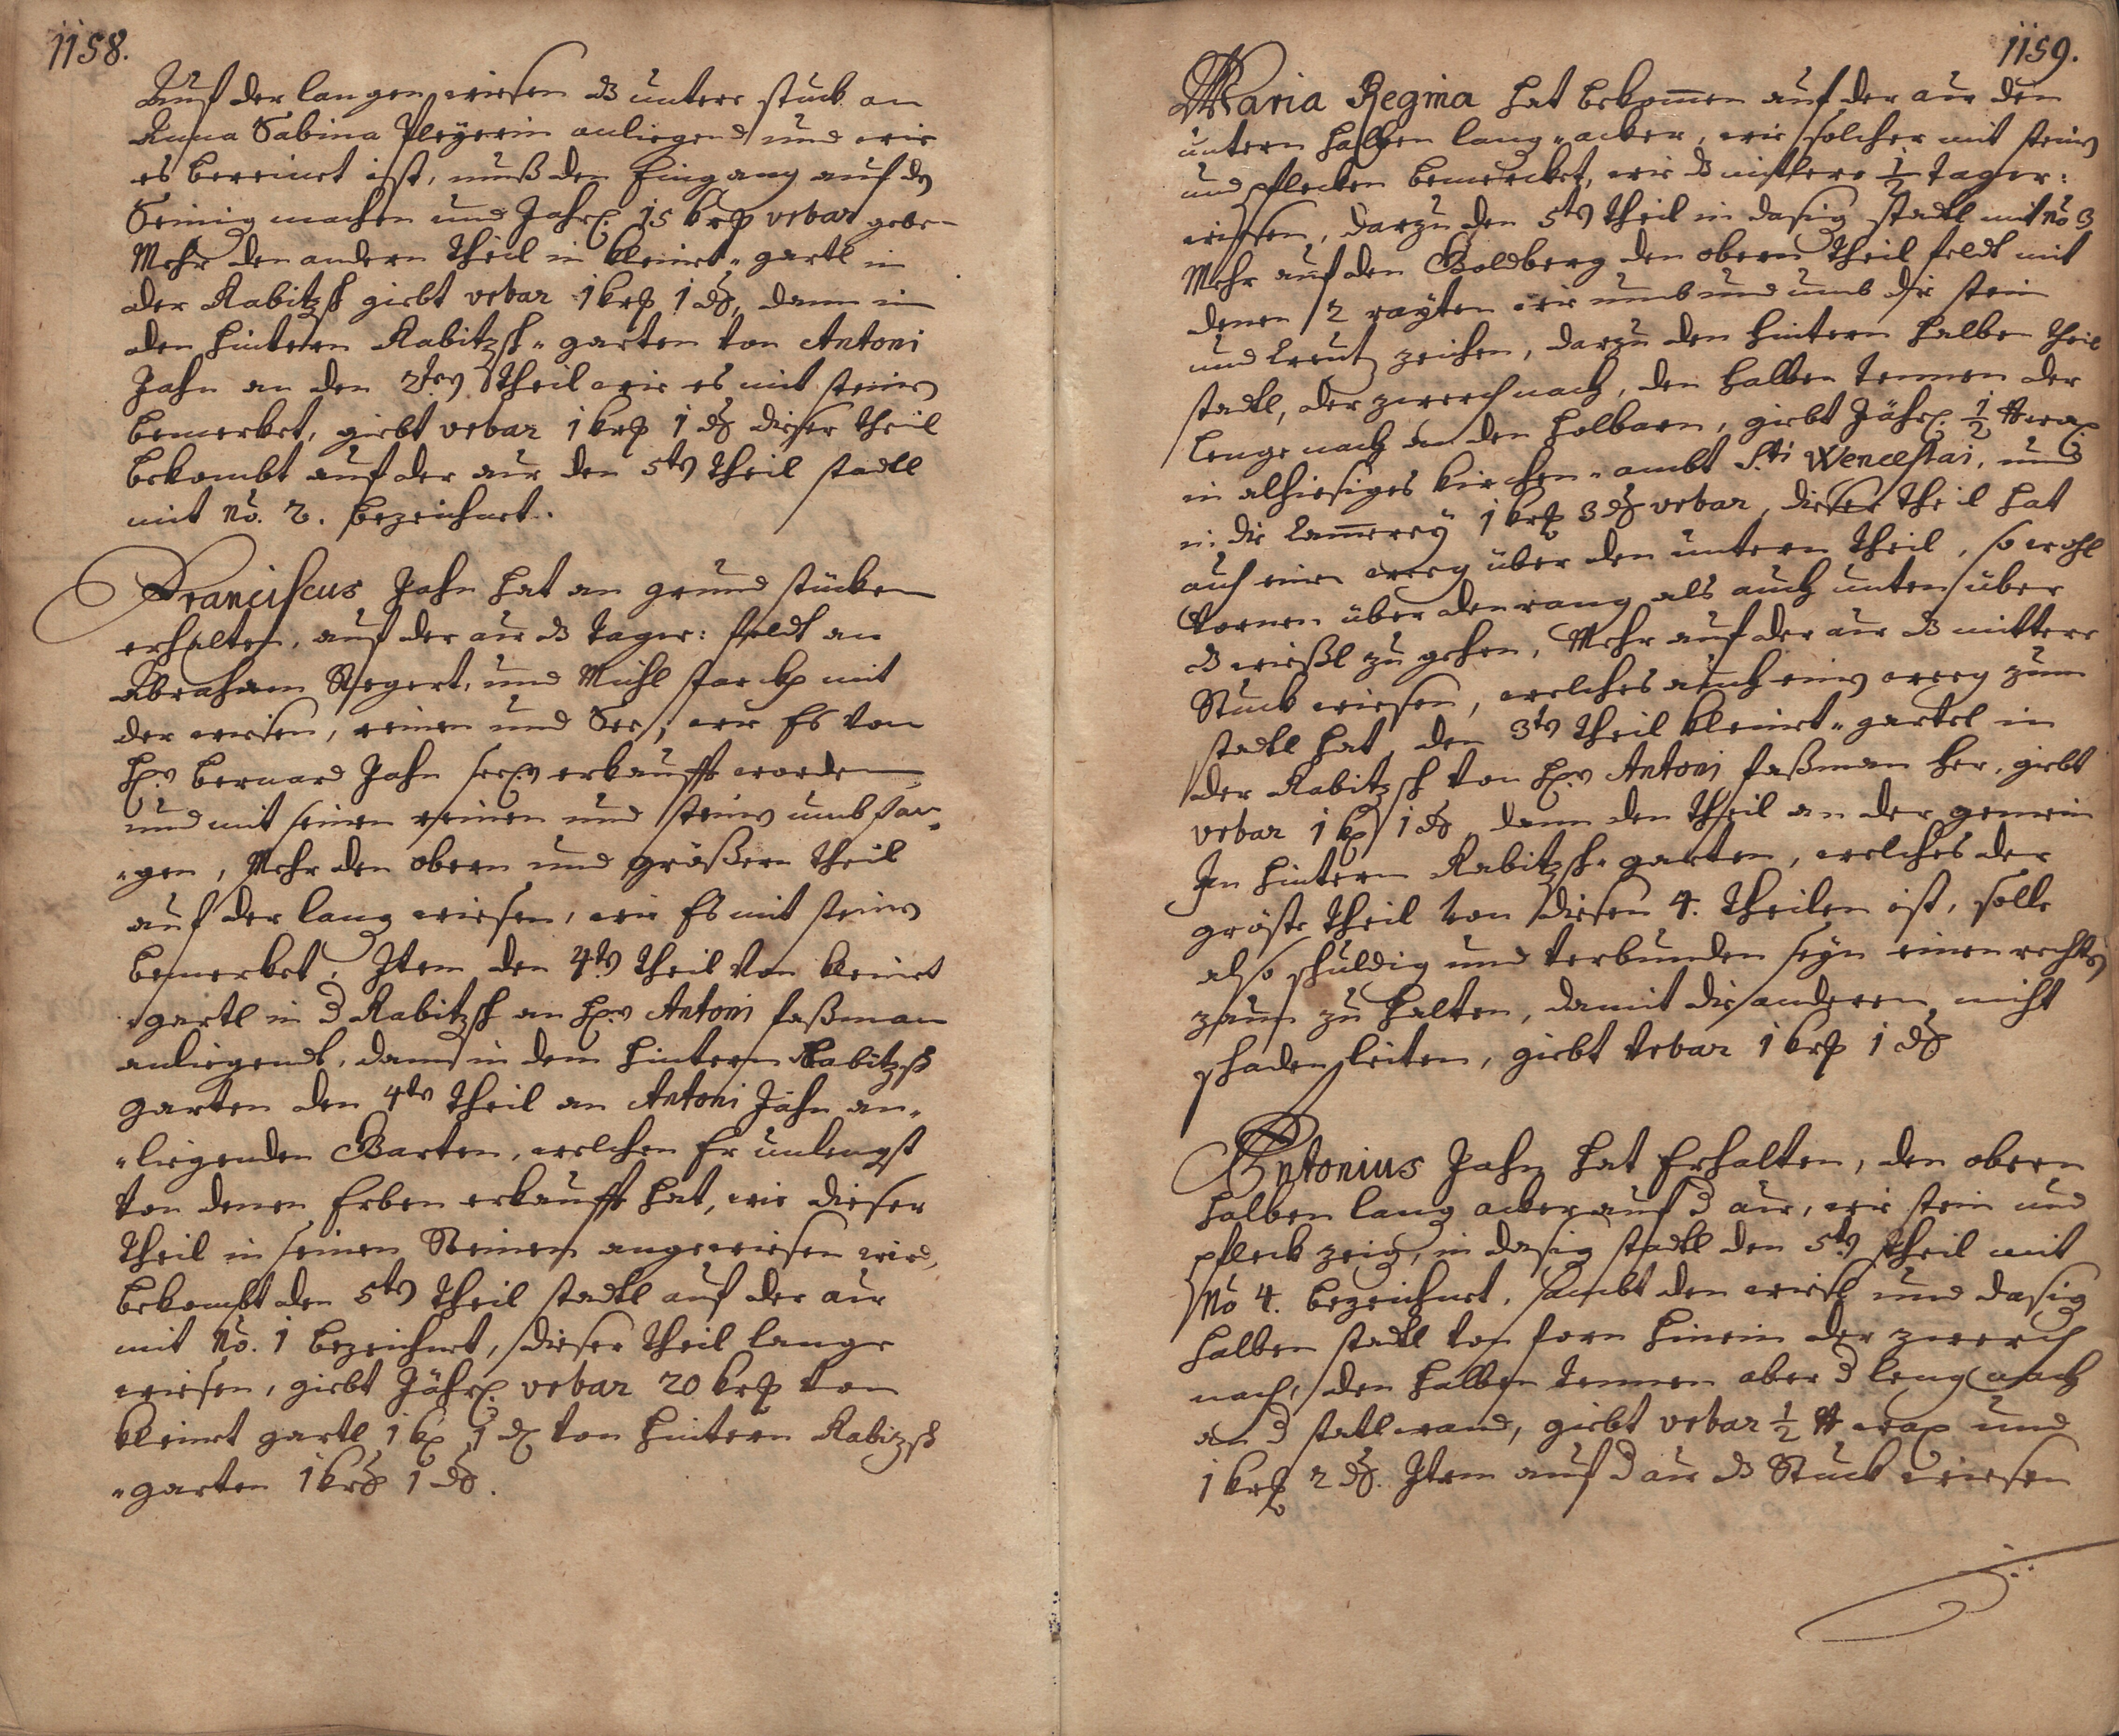 1158.
Auf der langen wiesen dß untere stuck an
Anna Sabina Pleyerin anliegend und wie
es bereinet ist, muß den Eingang auf dz
Seinig machen und Jährl. 15 krz vrbar geben
Mehr den andern Theil in kleinet- gartl in
der Rabitzsch giebt vrbar 1 krz 1 d, dann in
den hintern Rabitzsch- garten von Antoni
Jahn an den 2ten Theil wie es mit steinen
bemerket, giebt vrbar 1 krz 1 d dieser Theil
bekombt auf der aue den 5ten Theil stadtl
mit No. 2. bezeichnet.
Franciscus Jahn hat an grund stücken
erhalten, auf der aue dß tagw: feldt an
Abraham Siegert, und Mühl mit
der wiesen, reinen und See, wie Es von
H. Bernard Jahn seel. erkaufft worden
und mit seinen reinen und steinen umbfan-
-gen, Mehr den obern und größern Theil
auf der lang wiesen, wie Es mit steinen
bemerket, Item den 4ten Theil von kleinet
-gartl in d Rabitzsch an H. Antoni faßman
anliegendt, dann in dem hintern Rabitzsch
garten den 4ten Theil an Antoni Jahn an-
-liegenden Garten, welchen Er unlengst
von denen Erben erkaufft hat, wie dieser
Theil in seinen Steinen angewiesen wird,
bekombt den 5ten Theil stadtl auf der aue
mit No. 1 bezeichnet, dieser Theil lange
wiesen, giebt Jährl. vrbar 20 krz von
kleinet gartl 1 k 1 d von hintern Rabizsch
-garten 1 krz 1 d.
1159.
Maria Regina hat bekomen auf der aue den
untern halben lang- acker, wie solcher mit steinen
und pflecken bemercket, wie dß mittlere 1/2 tagw:
wiesen, darzu den 5ten Theil in dasig stadtl mit No 3
Mehr auf den Goldberg den obern Theil feldt mit
denen 2 raÿten wie umb und umb die stein
und Creutz zeichen, darzu den hintern halben Theil
stadtl, der zwerch nach, den halben tennen der
lenge nach an den holbarn, giebt Jährl. 1/2 ℔ wax
in alhiesiges kirchen- ambt S:ti Wenceslai, und
in die Camereÿ 1 krz 3 d vrbar, dieser Theil hat
auch einen weeg über den untern Theil, so wohl
vornen über den rang als auch unten über
dß wießl zu gehen, Mehr auf der aue dß mittere
Stuck wiesen, welches auch einen weeg zum
stadtl hat, den 3ten Theil kleinet- gartel in
der Rabitzsch von H. Antoni faßman her, giebt
vrbar 1 k 1 d dann den Theil an der gemein
In hintern Rabitzsch- garten, welches der
gröste Theil von diesen 4. Theilen ist, solle
also schuldig und verbunden seÿn einen rechten
zaun zu halten, damit die anderen nicht
schaden leiten, giebt vrbar 1 krz 1 d
Antonius Jahn hat Erhalten, den obern
halben lang acker auf d aue, wie stein und
pfleck zeig, in dasig stadtl den 5ten Theil mit
No 4. bezeichnet, sambt den wiesl und dasig
halben stadtl von forn hinein der zwerch
nach, den halben tennen aber d leng nach
an d statlwand, giebt vrbar 1/2 ℔ wax und
1 krz 2 d. Item auf d aue dß Stuck wiesen